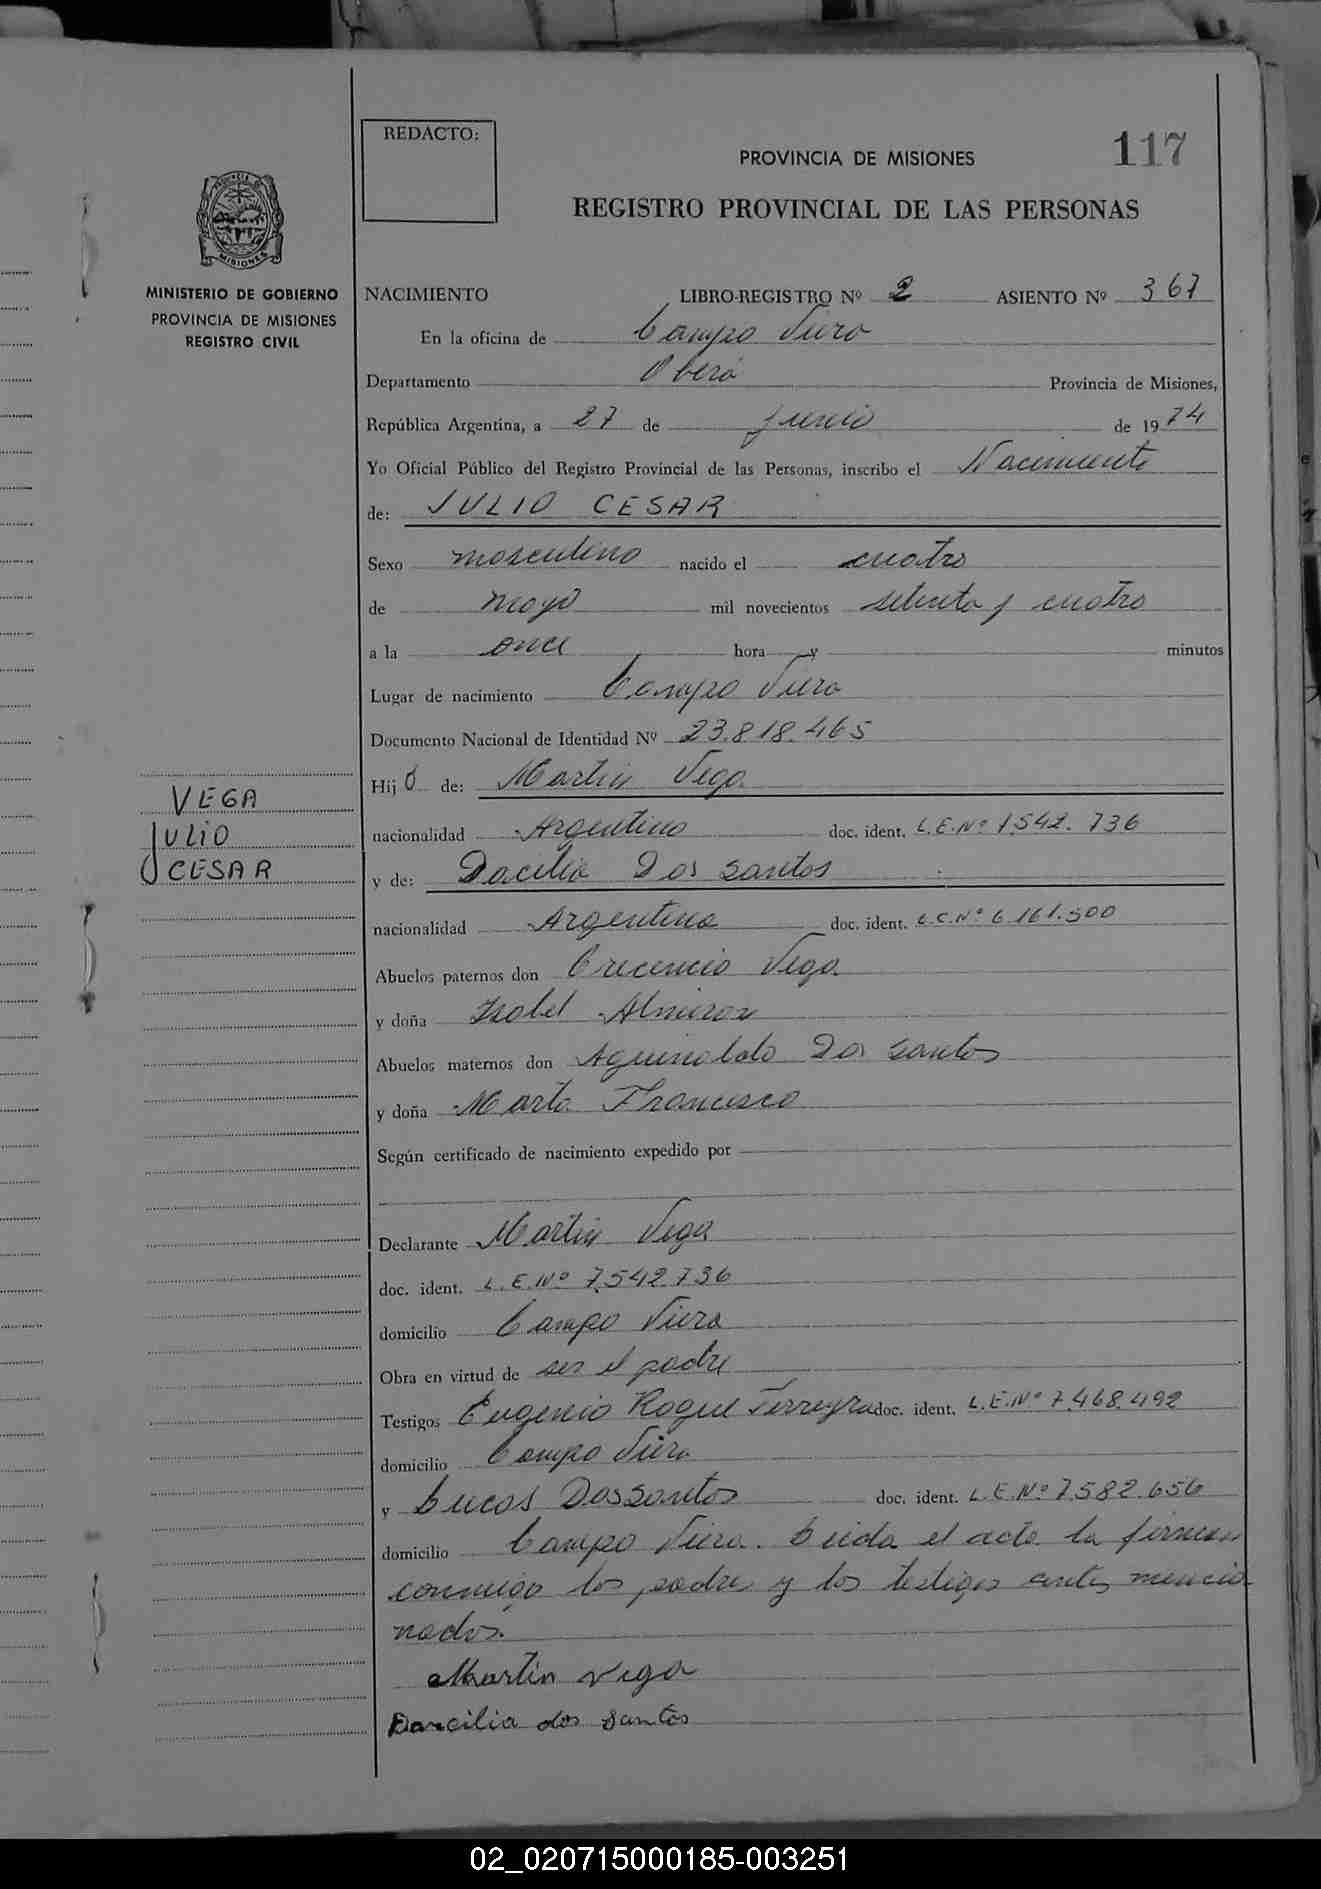 REDACTO:
117
PROVINCIA DE MISIONES
REGISTRO PROVINCIAL DE LAS PERSONAS
PROVINCIA DE MISIONES
MINISTERIO DE GOBIERNO
PROVINCIA DE MISIONES
REGISTRO CIVIL
NACIMIENTO LIBRO-REGISTRO Nº 2 ASIENTO Nº 367
En la oficina de Campo Viera
Departamento Oberá Provincia de Misiones,
República Argentina, a 27 de junio de 1974
Yo Oficial Público del Registro Provincial de las Personas, inscribo el Nacimiento
de: JULIO CESAR
Sexo masculino nacido el cuatro
de mayo mil novecientos setenta y cuatro
a la once hora y minutos
Lugar de nacimiento Campo Viera
Documento Nacional de Identidad Nº 23.818.465
Hijo de: Martin Vega
nacionalidad Argentino doc. ident. L.E.Nº 7.542.736
y de: Dacilia Dos santos
nacionalidad Argentina doc. ident. L.C.Nº 6.161.500
Abuelos paternos don Crecencio Vega
y doña Isabel Almiron
Abuelos maternos don Aguinaldo Dos santos
y doña Marta Francisco
Según certificado de nacimiento expedido por
Declarante Martin Vega
doc. ident. L.E.Nº 7.542.736
domicilio Campo Viera
Obra en virtud de ser el padre
Testigos Eugenio Roque Ferreyra doc. ident. L.E.Nº 7.468.492
domicilio Campo Viera
y Lucas Dos Santos doc. ident. L.E.Nº 7.582.656
domicilio Campo Viera. Leida el acta la firman
conmigo los padres y los testigos antes mencio
nados.
Martin Vega
Darcilia dos Santos
VEGA
JULIO
CESAR
02_020715000185-003251